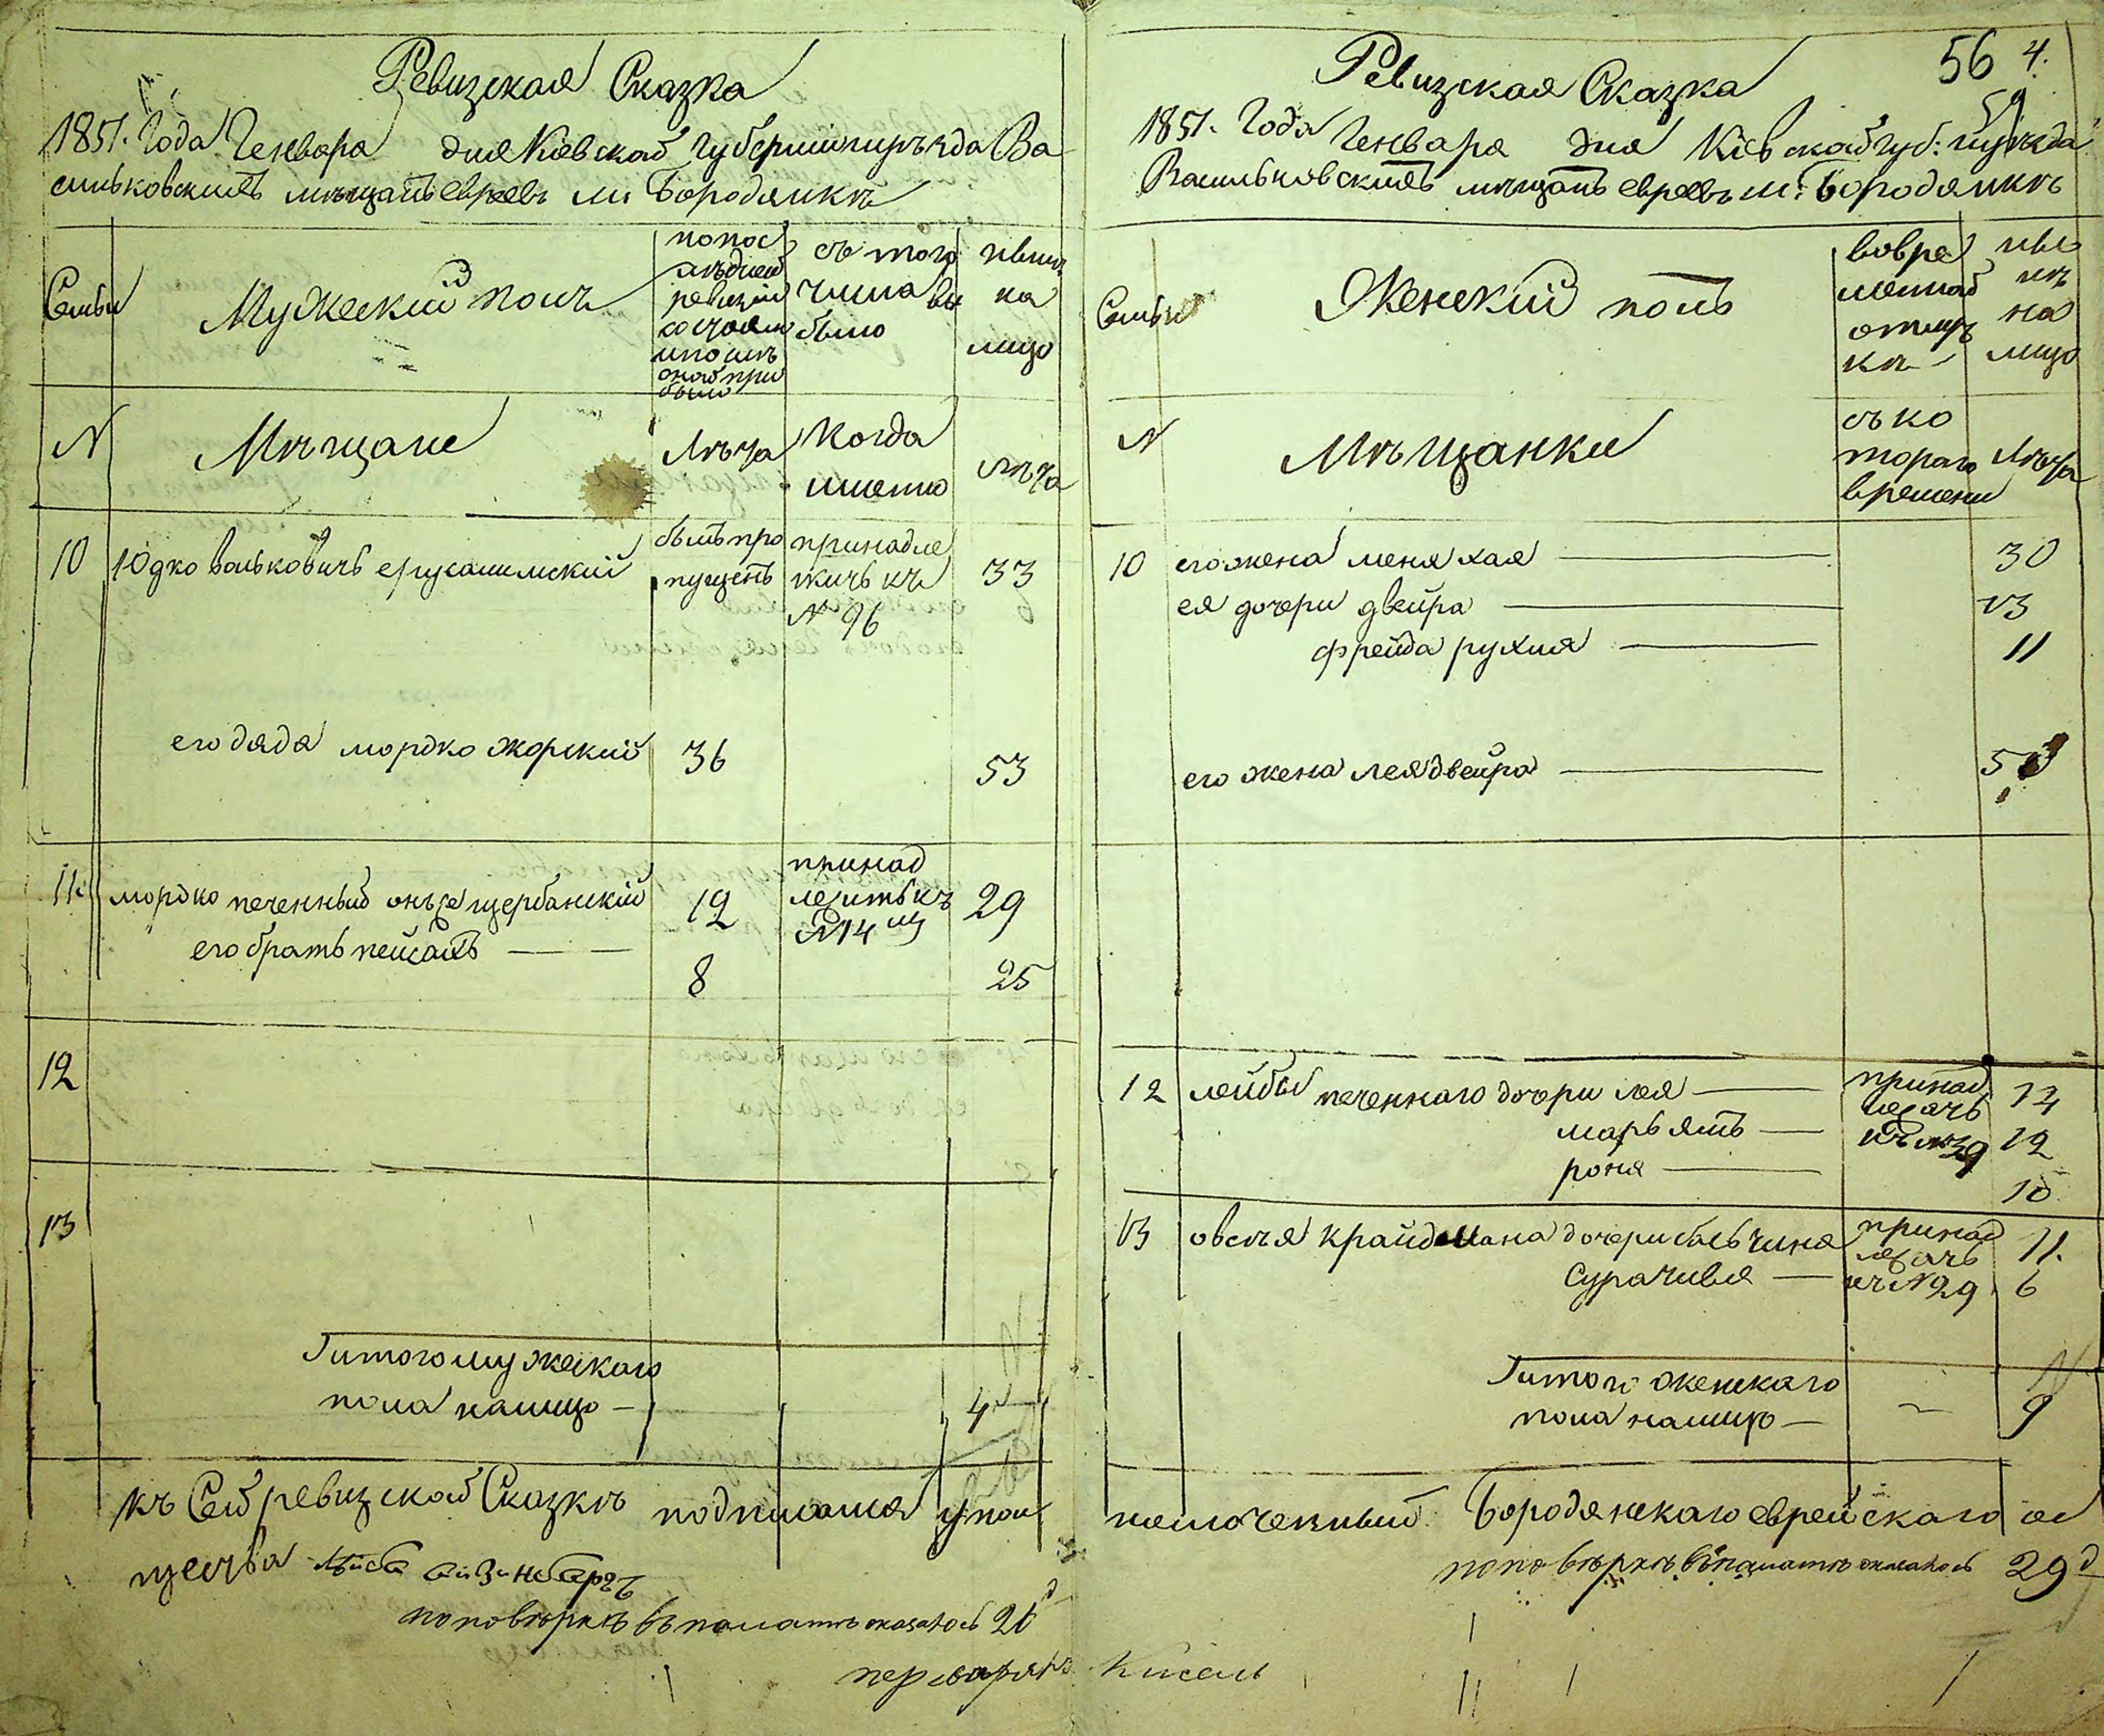 Ревизская Сказка
1851. Года Генваря дня Киевской губернии уезда Ва
сильковскихъ мѣщанъ евреевъ м. Бородянкѣ
Семьи
Мужескій полъ
по пос
лѣдней
ревизіи
состояло
и послѣ
оной при
было
съ того
числа вы
было
ка
лицо
N
Мѣщане
Лѣта
Когда
именно
лѣта
10 Юдко Вольковичъ ерусалимскій
былъ про
пущенъ
принадле
житъ къ
N 96
33
его дядя мордко жорскій 36 53
11 мордко печенный онъ же щербанскій 12
принад
лежитъ къ
N 14
29
его братъ пейсахъ — — 8 25
12
13
Итого мужескаго
пола налицо — 4
къ Сей ревизской Сказкѣ подписался упол
щества
по повѣркѣ въ палатѣ оказалось 26
Ревизская Сказка
56 4.
59
1851. Года Генваря дня Кіевской губ: уѣзда
Васильковскихъ мѣщанъ евреевъ м: Бородянкѣ
Семьи
Женскій полъ
во вре
менной
отлуч
кѣ
ны
нѣ
на
лицо
N
Мѣщанки
съ ко
тораго
времени
Лѣта
10 его жена меня хая — 30
ея дочери двейра — 13
фрейда рухля — 11
его жена лея двейра — 50
12 лейбы печеннаго дочери лея —
принад
лежатъ
къ N 39
14
марьямъ — 12
роня — 10
13 овсѣя крайдмана дочери бась чина
принад
лежатъ
къ N 29
11.
сура чивля — 6
Итого женскаго
пола налицо — 9
номоченный Бородянскаго еврейскаго об
по повѣркѣ въ палатѣ оказалось 29